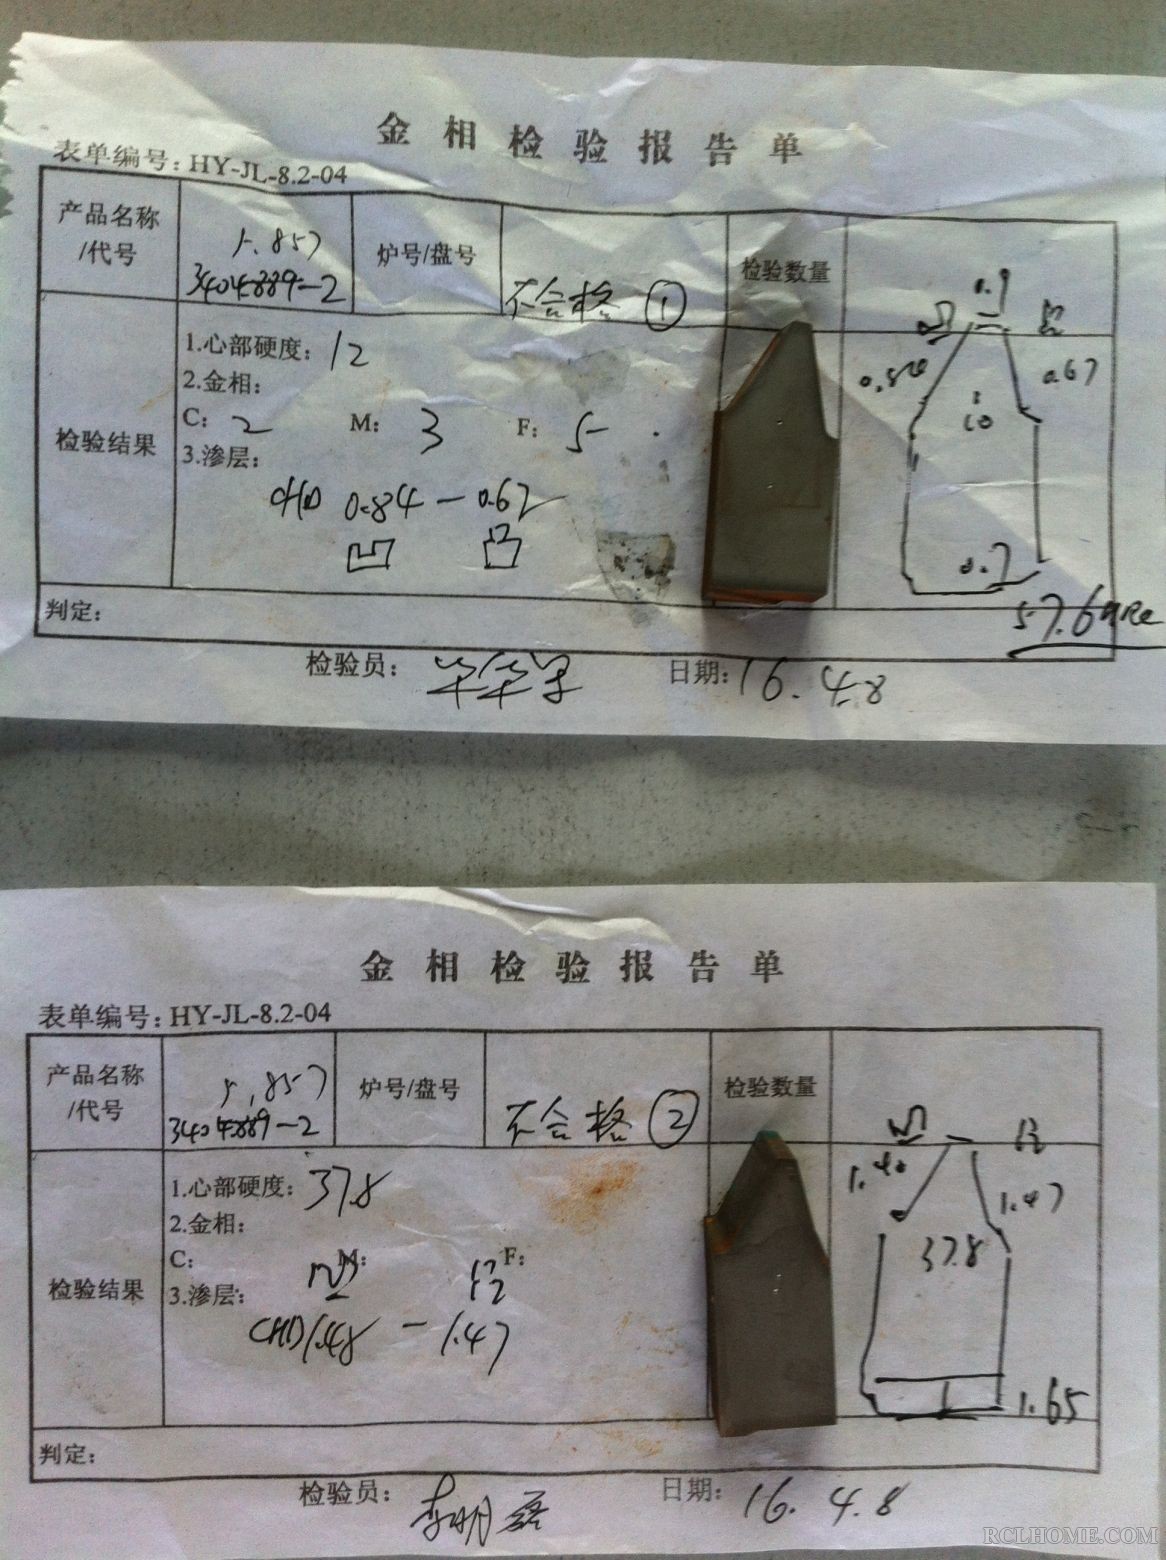 金相检验报告单
表单编号: HY-JL-8.2-04
产品名称/代号
3404889-2
炉号/盘号
不合格 ①
检验数量
检验结果
1.心部硬度: 12
2.金相:
C: 2 M: 3 F: 5
3.渗层:
CHD 0.84 — 0.62
凹 凸
0.9
凹
0.67
10
0.7
57.6HRC
判定:
检验员:
日期: 16.4.8
金相检验报告单
表单编号: HY-JL-8.2-04
产品名称/代号
3404889-2
炉号/盘号
不合格 ②
检验数量
检验结果
1.心部硬度: 37.8
2.金相:
C: M: F:
3.渗层:
凹 凸
CHD 1.48 — 1.47
凹 凸
1.47
37.8
1.65
判定:
检验员:
日期: 16.4.8
RCLHOME.COM